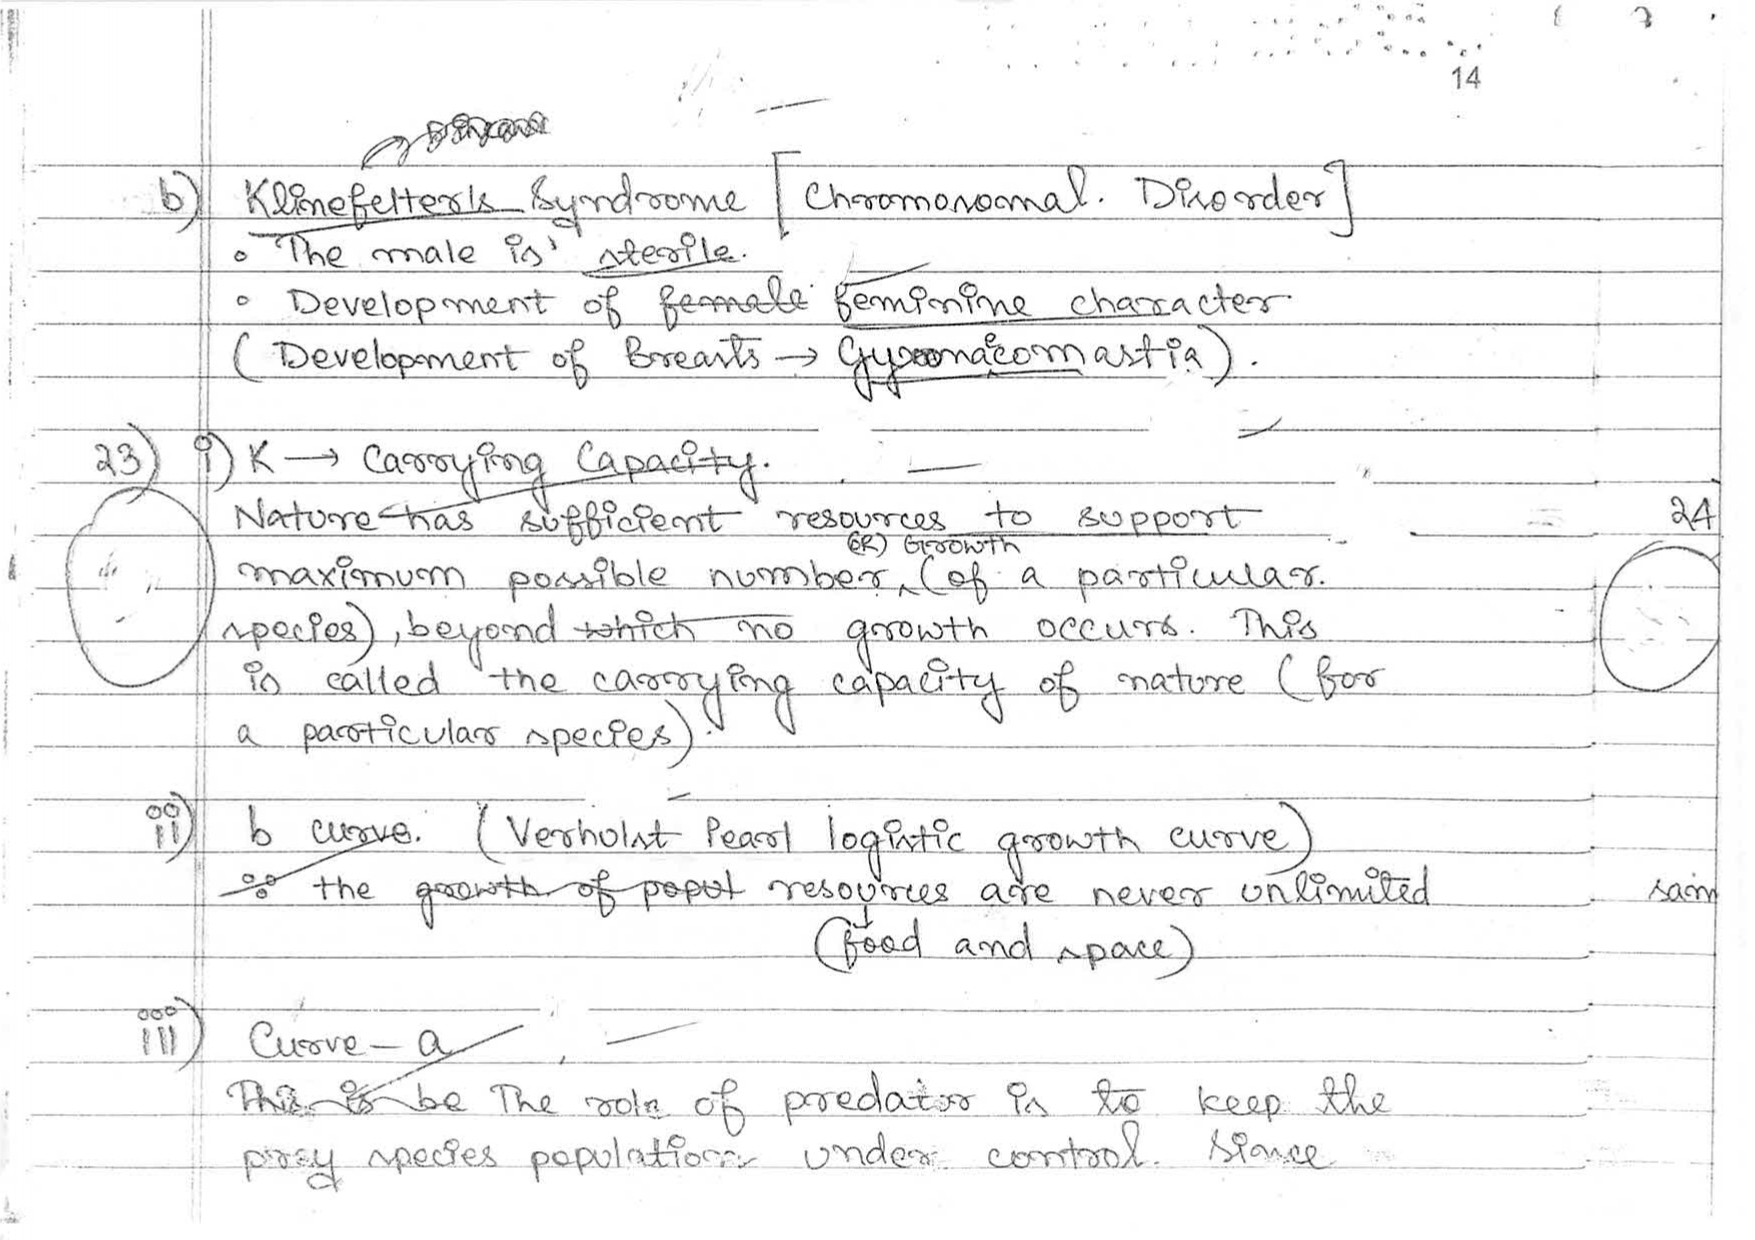 14
b) Klinefelter's Syndrome [Chromosomal. Disorder]
• The male is sterile.
• Development of female feminine character
(Development of Breasts → Gynacomastia).
23) i) K → Carrying Capacity.
Nature has sufficient resources to support 24
(OR) Growth
maximum possible number (of a particular.
species), beyond which no growth occurs. This
is called the carrying capacity of nature (for
a particular species).
ii) b curve. (Verhulst Pearl logistic growth curve)
∵ the growth of popul resources are never unlimited sam
↓
(food and space)
iii) Curve - a
This is be The role of predator is to keep the
prey species population under control. Since